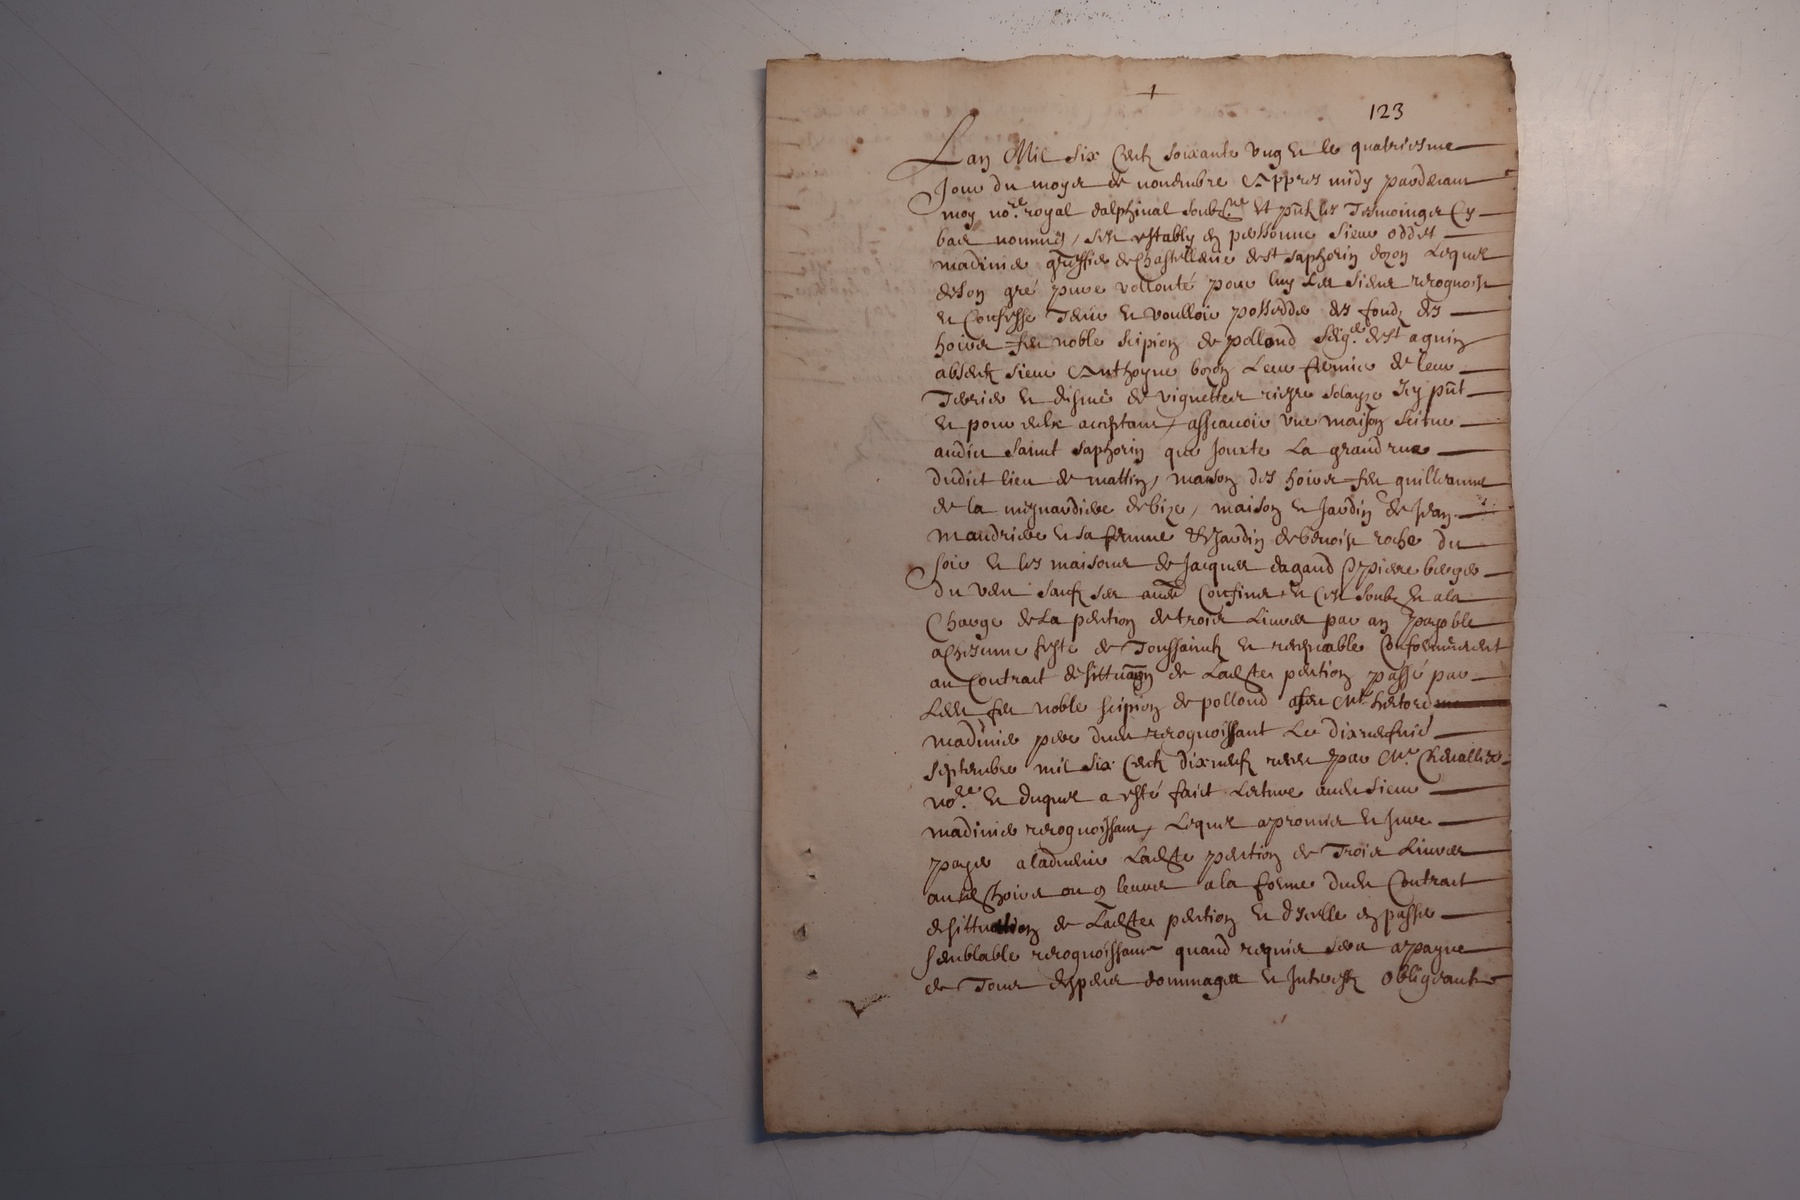 123
Lan Mil six centz soixante ung et le quatriesme
Jour du moys de novembre Appres midy pardevant
moy no.re royal dalphinal soubz.ne et pñtz les Tesmoinges Cy
bas nommés, sest estably en personne sieur oddet
madinier greffier de Chastellenie de st saphorin dozon Lequel
de son gré pure vollonté pour luy Les siens recognoist
et Confesse Tenir et voulloir possedder des fondz des
hoirs feu noble scipion de polloud seig.r de st agnin
absentz sieur Anthoyne bozon Leur fermier de leur
Terrier et disme de vignettes riesre solayze Icy pñt
et pour eulx acceptant, assavoir une maison scitue
audict saint saphorin que Jouxte La grand rue
dudict lieu de mattin, maison des hoirs feu guilleaume
de la mignardiere de bize, maison et Jardin de Jean
mandriere et sa femme & Jardin de benoist roche du
soir et les maisons de Jacques dagand & pierre berger
du vent saufz ses aues Confins et Cest soubz et a la
Charge de La pention de trois Livres par an payable
a Chescune feste de Toussaintz et revenable Conformement
au Contract de sittuaon de Ladte pention passé par
Ledt feu noble scipion de polloud a feu Me hector
madinier pere dudt recognoissant Le dixneufvie
septembre mil six Centz dix neufz receu par Me. Chevallier
no.re et duquel a esté faict Lecture audt sieur
madinier recognoissant, Lequel a promis et Jure
payer a ladvenir Ladte pention de Trois Livres
ausd hoirs ou 9 leurs a la forme dudt Contract
de sittuation de Ladte pention et dicelle en passer
semblable recognoissance quand requis sera a payne
de Tous despens dommages et Interestz obligeant